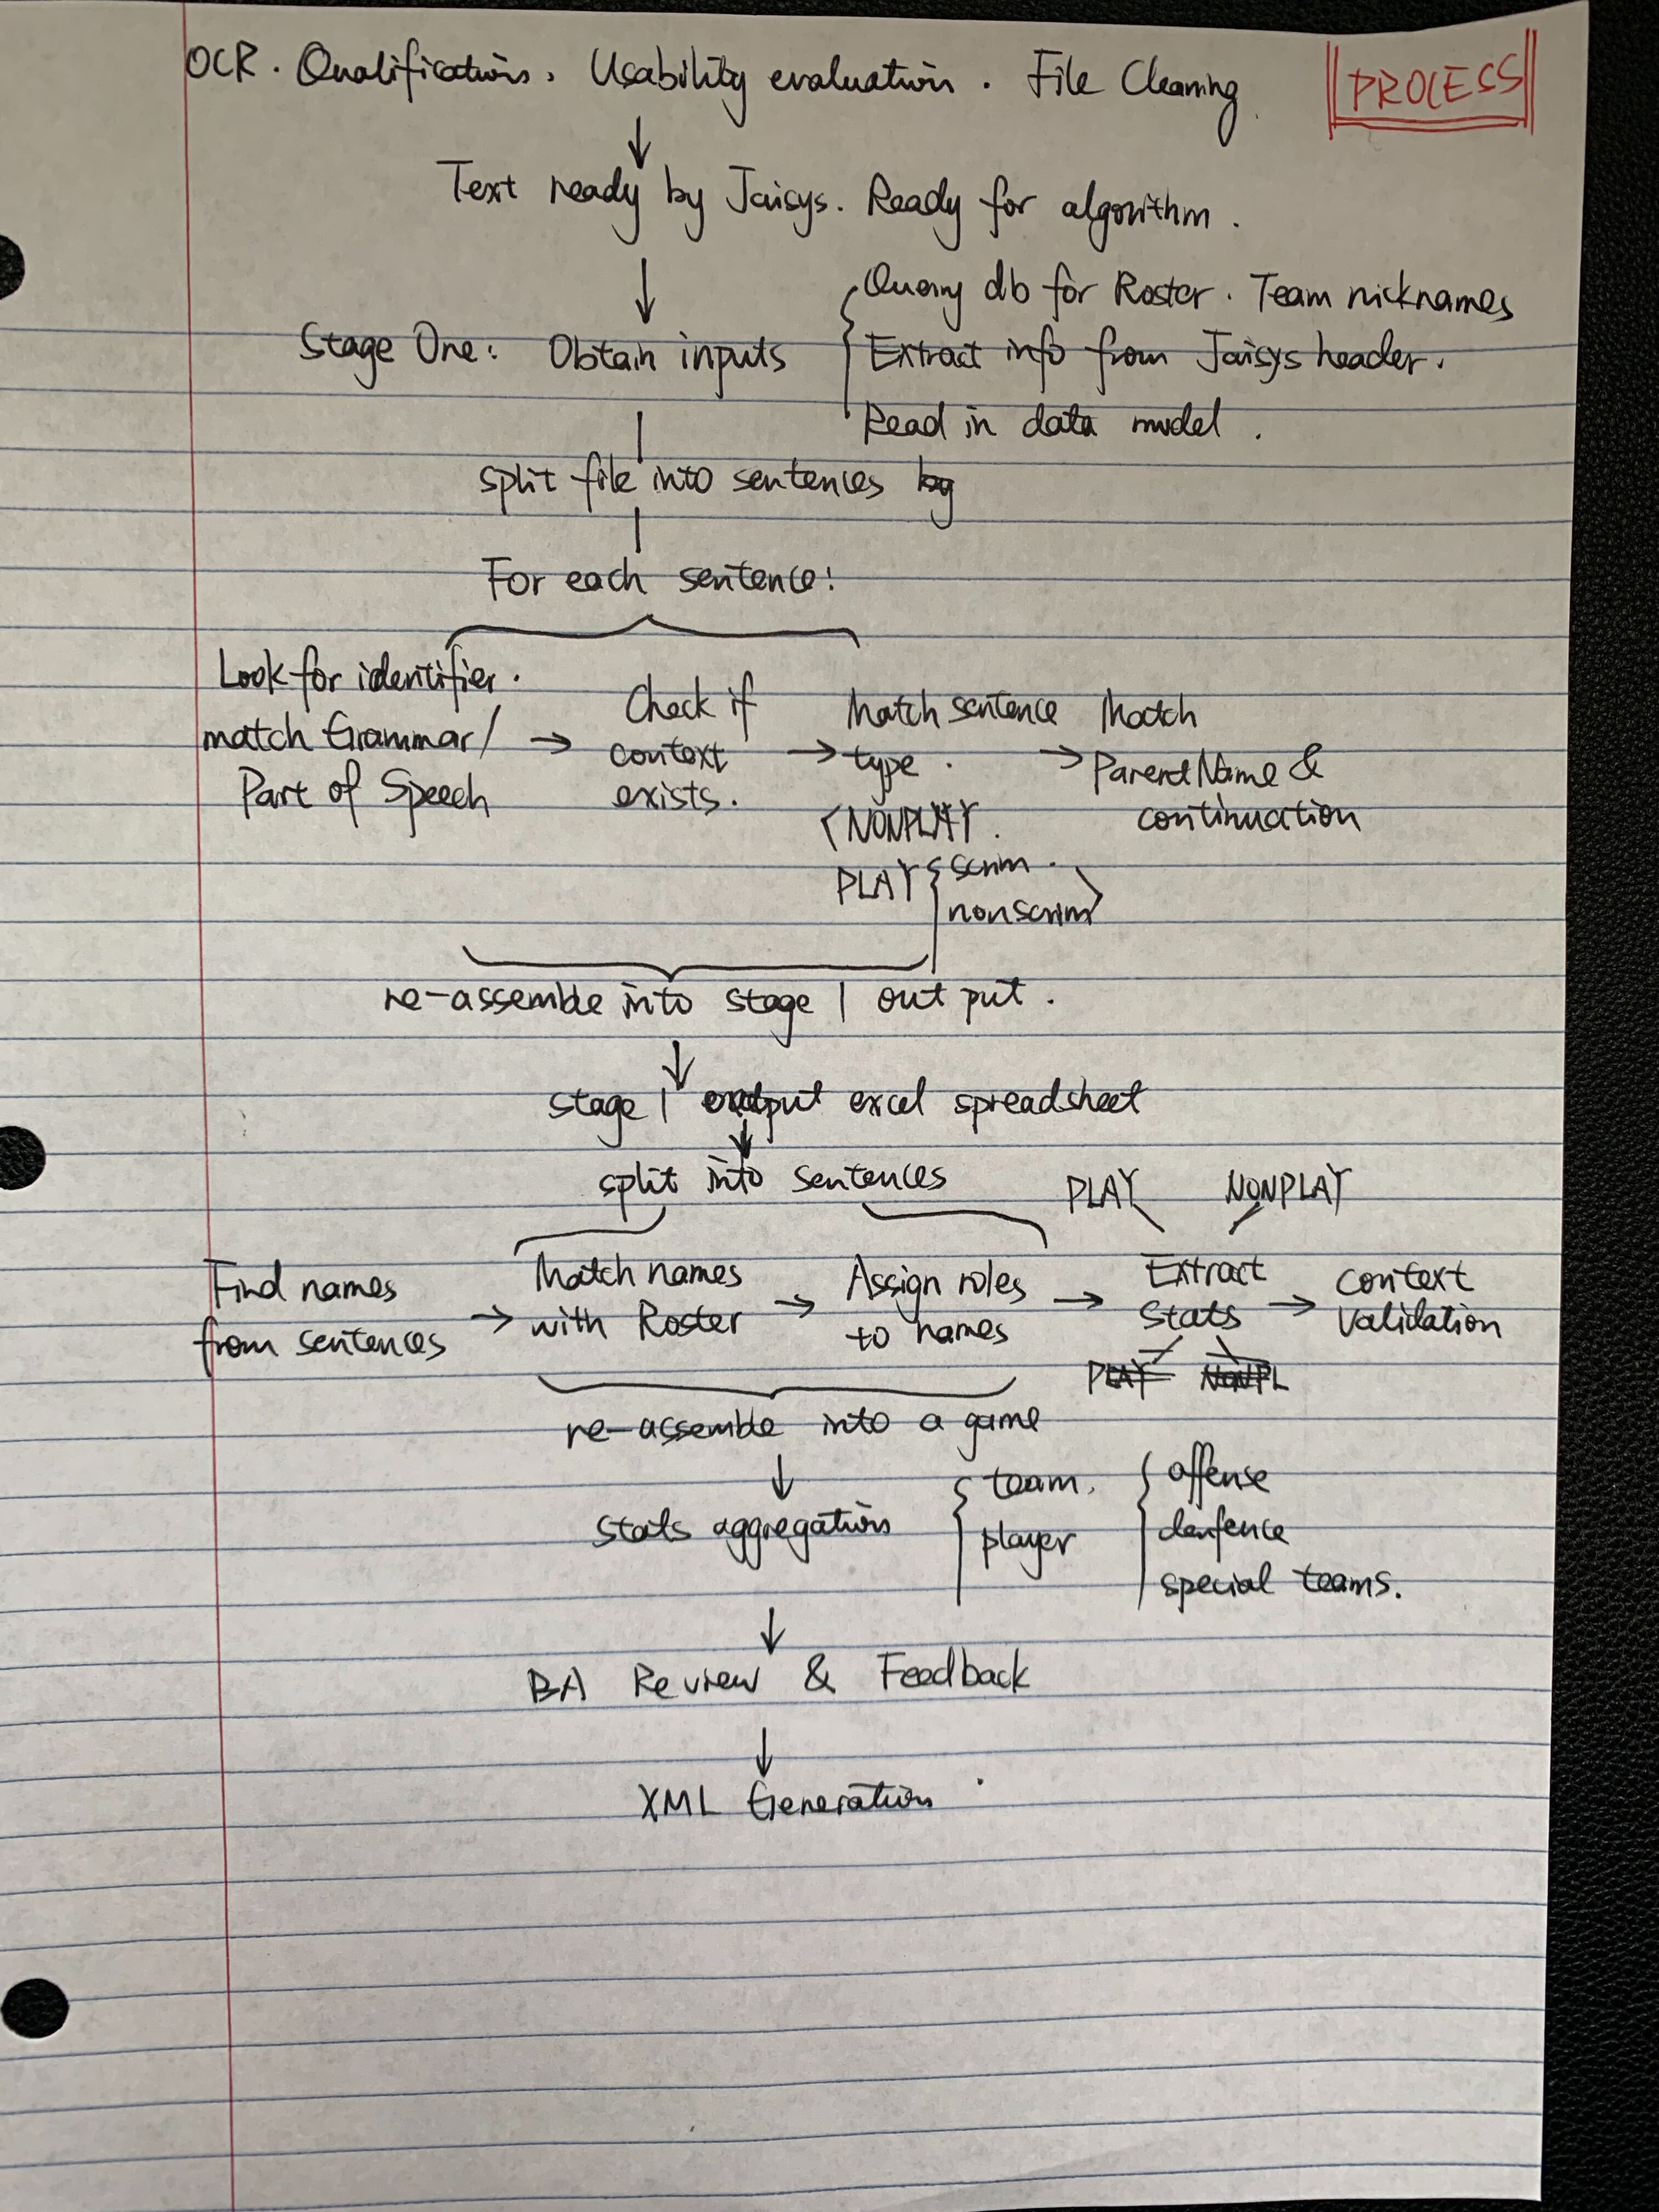 OCR. Qualifications. Usability evaluation. File Cleaning
PROCESS
Text ready by Jaisys. Ready for algorithm.
Query db for Roster. Team nicknames
Stage One: Obtain inputs
Extract info from Jaisys header.
Read in data model.
split file into sentences by
For each sentence:
Look for identifier.
match Grammar/
Part of Speech
→ Check if
context
exists.
→ Match sentence
type.
<NONPLAY.
PLAY { scrim.
nonscrim>
→ Match
ParentName &
continuation
re-assemble into stage 1 output.
stage 1 output excel spreadsheet
split into sentences
PLAY NONPLAY
Find names
from sentences
→ Match names
with Roster
→ Assign roles
to names
→ Extract
Stats
→ Context
Validation
re-assemble into a game
Stats aggregation
team.
player
offense
denfence
special teams.
BA Review & Feedback
XML Generation